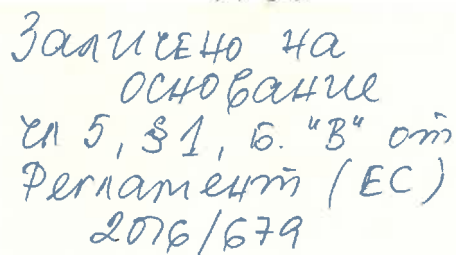 Заличено на
основание
чл 5, §1, б. "В" от
Регламент (ЕС)
2016/679